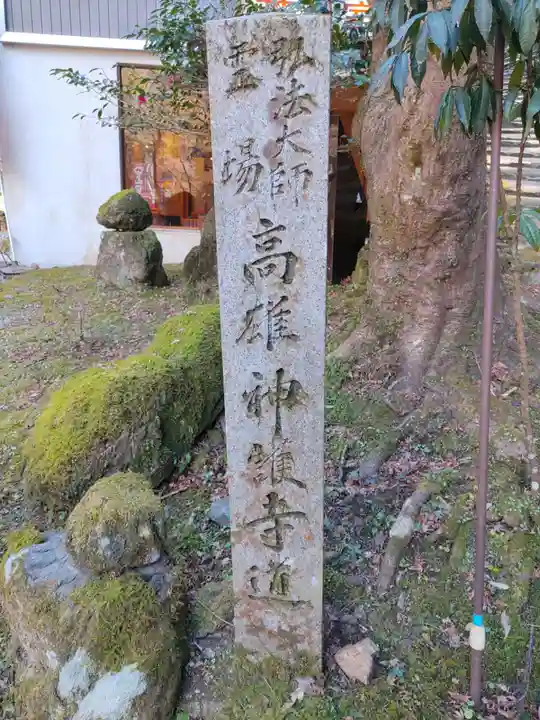 弘法大師
霊場
高雄神護寺道